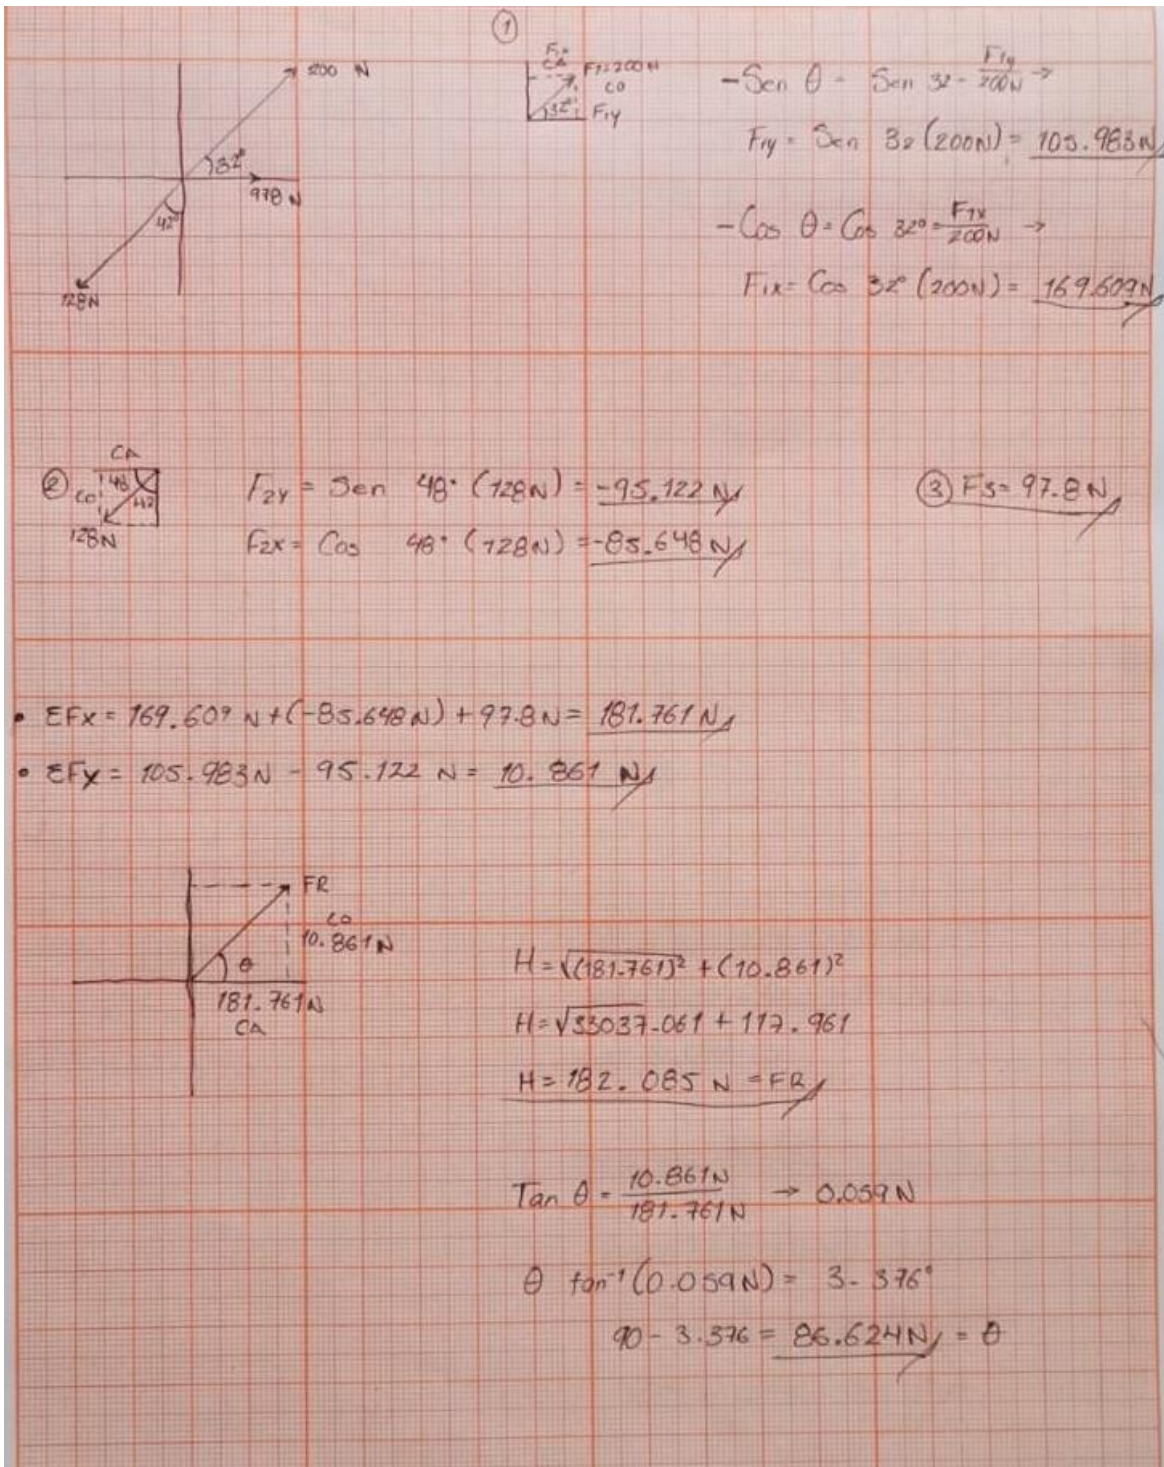 ①
200 N
32°
978 N
42°
128N
F1x
CA
F1=200N
CO
32°
F1y
-Sen θ = Sen 32 = F1y/200N →
F1y = Sen 32 (200N) = 105.983N
-Cos θ = Cos 32° = F1x/200N →
F1x = Cos 32° (200N) = 169.609N
②
CA
CO
48
42
128N
F2y = Sen 48° (128N) = -95.122 N
F2x = Cos 48° (128N) = -85.648 N
③ F3 = 97.8 N
• ΣFx = 169.609 N + (-85.648 N) + 97.8 N = 181.761 N
• ΣFy = 105.983N - 95.122 N = 10.861 N
FR
CO
10.861N
θ
181.761N
CA
H = √(181.761)² + (10.861)²
H = √33037.061 + 117.961
H = 182.085 N = FR
Tan θ = 10.861N/181.761N → 0.059 N
θ tan⁻¹ (0.059N) = 3.376°
90 - 3.376 = 86.624N = θ